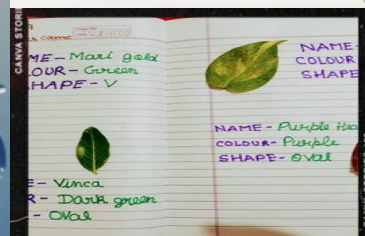 CANVA STORI
ME - Mari gold
OUR - Green
HAPE - V
E - Vinca
R - Dark green
- Oval
NAME-
COLOUR
SHAPE
NAME - Purple Hea
COLOUR - Purple
SHAPE - Oval